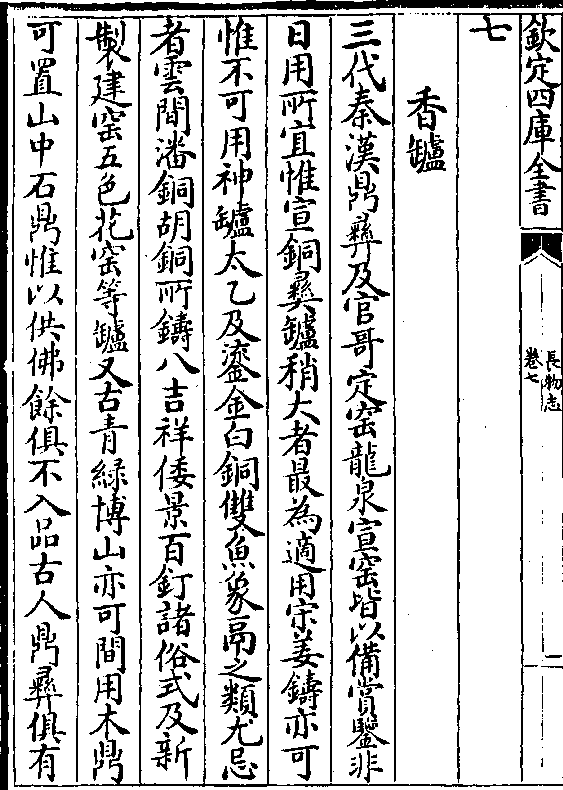 欽定四庫全書
長物志
卷七
二
七
香罏
三代秦漢鼎彝及官哥定窑龍泉宣窑皆以備賞鑒非
日用所宜惟宣銅彝罏稍大者最為適用宋姜鑄亦可
惟不可用神罏太乙及鎏金白銅雙魚象鬲之類尤忌
者雲間潘銅胡銅所鑄八吉祥倭景百釘諸俗式及新
製建窑五色花窑等罏又古青緑博山亦可間用木鼎
可置山中石鼎惟以供佛餘俱不入品古人鼎彝俱有